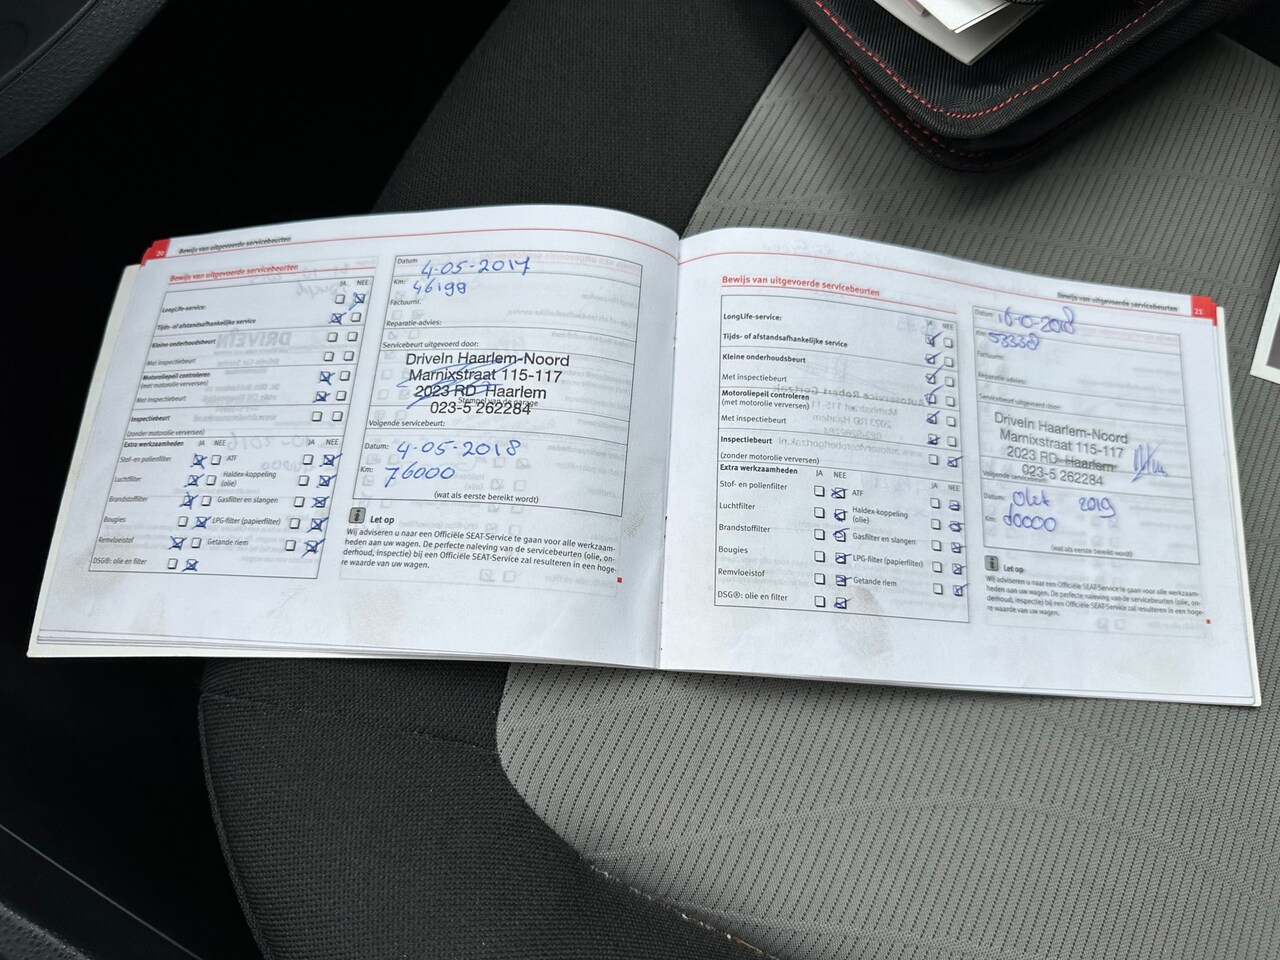 20 Bewijs van uitgevoerde servicebeurten
Bewijs van uitgevoerde servicebeurten
JA NEE
LongLife-service:
Tijds- of afstandsafhankelijke service
Kleine onderhoudsbeurt
Met inspectiebeurt
Motoroliepeil controleren
(met motorolie verversen)
Met inspectiebeurt
Inspectiebeurt
(zonder motorolie verversen)
Extra werkzaamheden JA NEE JA NEE
Stof- en pollenfilter ATF
Luchtfilter Haldex-koppeling
(olie)
Brandstoffilter Gasfilter en slangen
Bougies LPG-filter (papierfilter)
Remvloeistof Getande riem
DSG®: olie en filter
Datum 4-05-2017
Km: 46199
Factuurnr.
Reparatie-advies:
Servicebeurt uitgevoerd door:
DriveIn Haarlem-Noord
Marnixstraat 115-117
2023 RD Haarlem
Stempel van de garage
023-5 262284
Volgende servicebeurt:
Datum: 4-05-2018
Km: 76000
(wat als eerste bereikt wordt)
i Let op
Wij adviseren u naar een Officiële SEAT-Service te gaan voor alle werkzaam-
heden aan uw wagen. De perfecte naleving van de servicebeurten (olie, on-
derhoud, inspectie) bij een Officiële SEAT-Service zal resulteren in een hoge-
re waarde van uw wagen.
Bewijs van uitgevoerde servicebeurten 21
Bewijs van uitgevoerde servicebeurten
JA NEE
LongLife-service:
Tijds- of afstandsafhankelijke service
Kleine onderhoudsbeurt
Met inspectiebeurt
Motoroliepeil controleren
(met motorolie verversen)
Met inspectiebeurt
Inspectiebeurt
(zonder motorolie verversen)
Extra werkzaamheden JA NEE JA NEE
Stof- en pollenfilter ATF
Luchtfilter Haldex-koppeling
(olie)
Brandstoffilter Gasfilter en slangen
Bougies LPG-filter (papierfilter)
Remvloeistof Getande riem
DSG®: olie en filter
Datum
Km: 53338
Factuurnr.
Reparatie-advies:
Servicebeurt uitgevoerd door:
DriveIn Haarlem-Noord
Marnixstraat 115-117
2023 RD Haarlem
023-5 262284
Volgende servicebeurt:
Datum: 2019
Km:
(wat als eerste bereikt wordt)
i Let op
Wij adviseren u naar een Officiële SEAT-Service te gaan voor alle werkzaam-
heden aan uw wagen. De perfecte naleving van de servicebeurten (olie, on-
derhoud, inspectie) bij een Officiële SEAT-Service zal resulteren in een hoge-
re waarde van uw wagen.